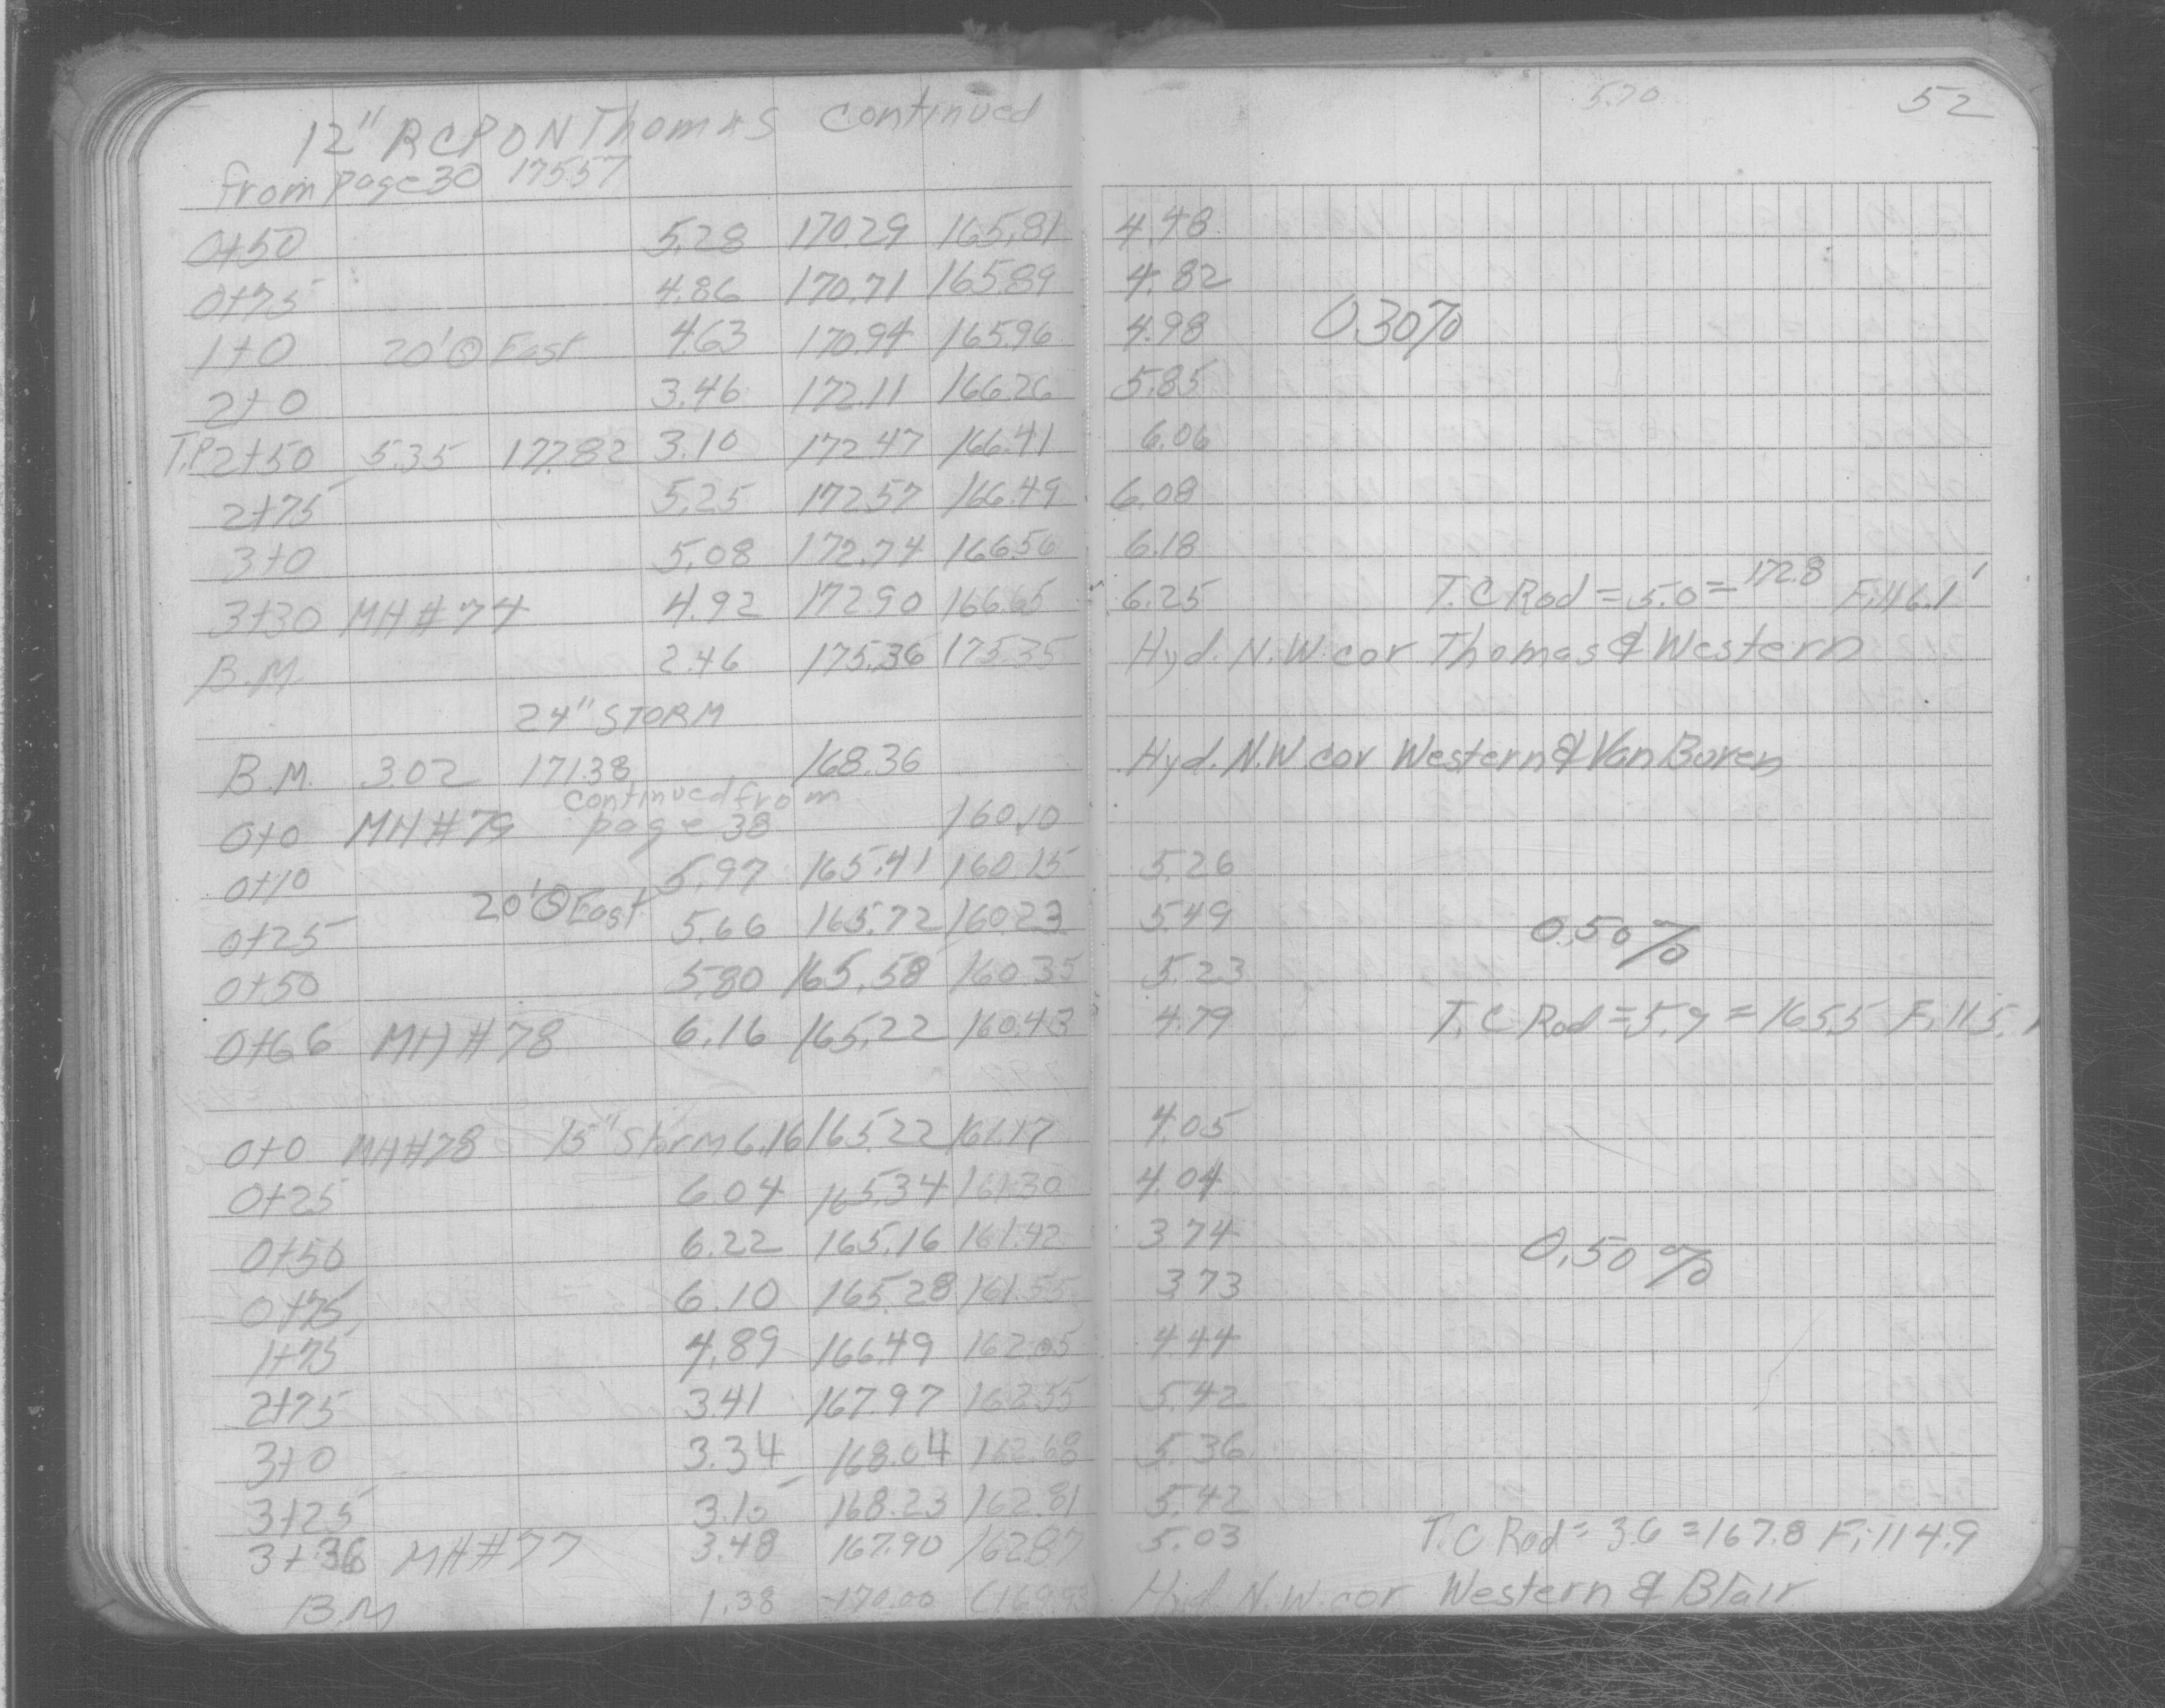 5.70 52
12" RCP ON Thomas continued
from page 30 175.57
0+50 5.28 170.29 165.81 4.48
0+75 4.86 170.71 165.89 4.82
1+0 20' @ East 4.63 170.94 165.96 4.98 0.30%
2+0 3.46 172.11 166.26 5.85
T.P 2+50 5.35 177.82 3.10 172.47 166.41 6.06
2+75 5.25 172.57 166.49 6.08
3+0 5.08 172.74 166.56 6.18
3+30 MH #74 4.92 172.90 166.65 6.25 T.C Rod = 5.0 = 172.8 Fill 6.1'
B.M. 2.46 175.36 175.35 Hyd. N.W. cor Thomas & Western
24" STORM
B.M. 3.02 171.38 168.36 Hyd. N.W cor Western & Van Buren
continued from
0+0 MH #79 page 38 160.10
0+10 5.97 165.41 160.15 5.26
0+25 20' @ East 5.66 165.72 160.23 5.49 0.50%
0+50 5.80 165.58 160.35 5.23
0+66 MH #78 6.16 165.22 160.43 4.79 T.C Rod = 5.9 = 165.5 Fill 5.1
0+0 MH #78 15" Storm 6.16 165.22 161.17 4.05
0+25 6.04 165.34 161.30 4.04
0+50 6.22 165.16 161.42 3.74 0.50%
0+75 6.10 165.28 161.55 3.73
1+75 4.89 166.49 162.05 4.44
2+75 3.41 167.97 162.55 5.42
3+0 3.34 168.04 162.68 5.36
3+25 3.15 168.23 162.81 5.42
3+36 MH #77 3.48 167.90 162.87 5.03 T.C Rod = 3.6 = 167.8 Fill 4.9
B.M 1.38 170.00 Hyd. N.W. cor Western & Blair